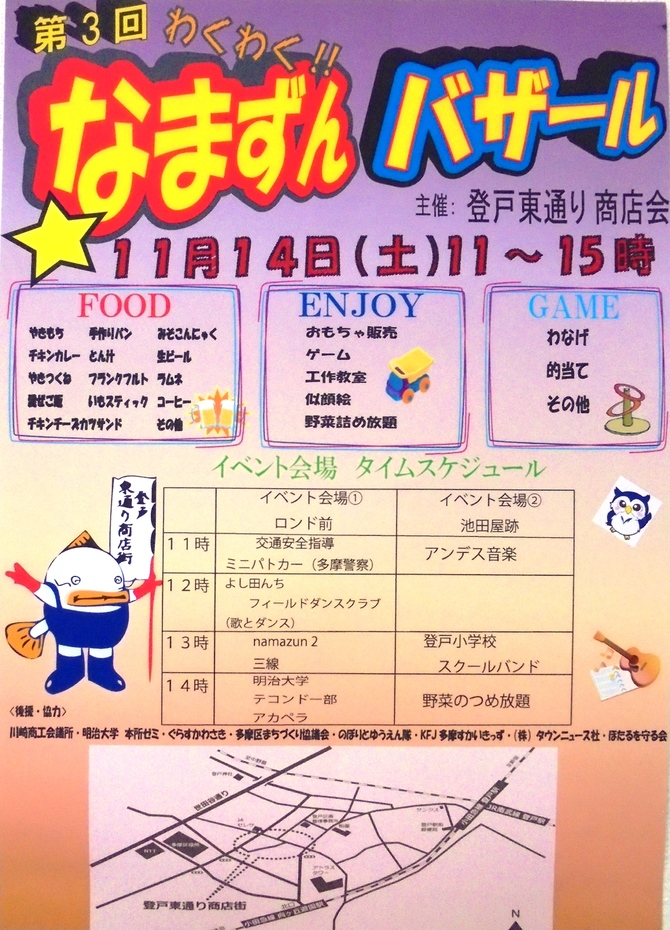 第3回 わくわく!!
なまずん バザール
主催: 登戸東通り 商店会
11月14日(土)11～15時
FOOD
やきもち 手作りパン みそこんにゃく
チキンカレー とん汁 生ビール
やきつくね フランクフルト ラムネ
混ぜご飯 いもスティック コーヒー
チキンチーズカツサンド その他
ENJOY
おもちゃ販売
ゲーム
工作教室
似顔絵
野菜詰め放題
GAME
わなげ
的当て
その他
イベント会場 タイムスケジュール
登戸
東通り商店街
イベント会場① イベント会場②
ロンド前 池田屋跡
11時 交通安全指導 アンデス音楽
ミニパトカー（多摩警察）
12時 よし田んち
フィールドダンスクラブ
（歌とダンス）
13時 namazun 2 登戸小学校
三線 スクールバンド
14時 明治大学 野菜のつめ放題
テコンドー部
アカペラ
〈後援・協力〉
川崎商工会議所・明治大学 本所ゼミ・ぐらすかわさき・多摩区まちづくり協議会・のぼりとゆうえん隊・KFJ 多摩すかいきっず・(株) タウンニュース社・ほたるを守る会
登戸神社
世田谷通り
JA
セレサ
多摩区役所
NTT
アトラス
タワー
サンクス
小田急線 登戸駅
JR南武線 登戸駅
登戸東通り商店街
北口
小田急線 向ヶ丘遊園駅
N